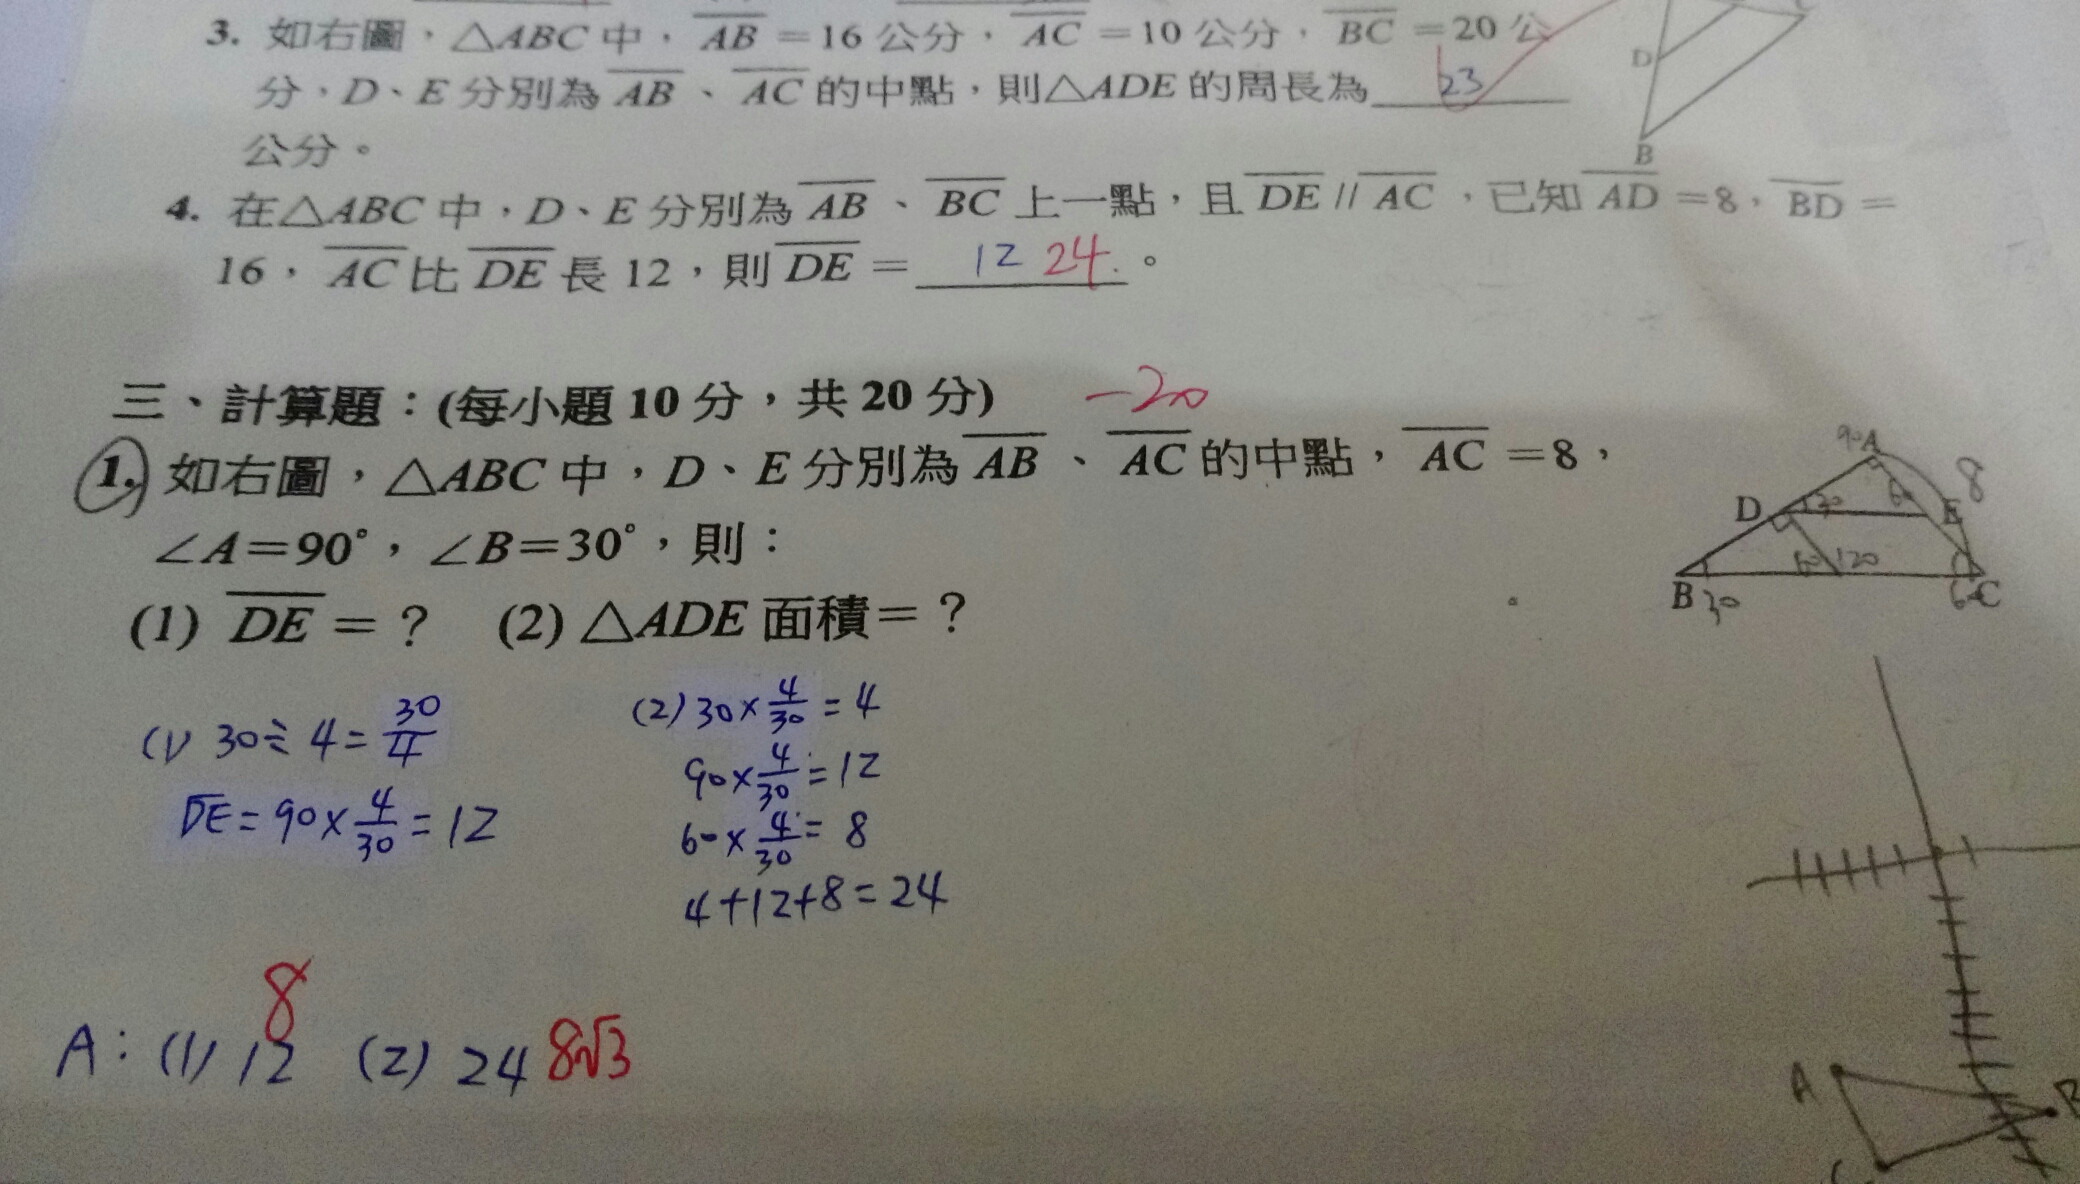 3. 如右圖，△ABC 中，AB＝16 公分，AC＝10 公分，BC＝20 公
分，D、E 分別為 AB、AC 的中點，則△ADE 的周長為 23
公分。
D
B
4. 在△ABC 中，D、E 分別為 AB、BC 上一點，且 DE // AC，已知 AD＝8，BD＝
16，AC 比 DE 長 12，則 DE＝ 12 24 。
三、計算題：(每小題 10 分，共 20 分) -20
1. 如右圖，△ABC 中，D、E 分別為 AB、AC 的中點，AC＝8，
∠A＝90°，∠B＝30°，則：
(1) DE＝？ (2) △ADE 面積＝？
90 A
8
D 30 60 E
60 120
B 30 60 C
(1) 30÷4=30/4
DE=90×4/30=12
(2) 30×4/30=4
90×4/30=12
60×4/30=8
4+12+8=24
A：(1) 12 8 (2) 24 8√3
A B
C